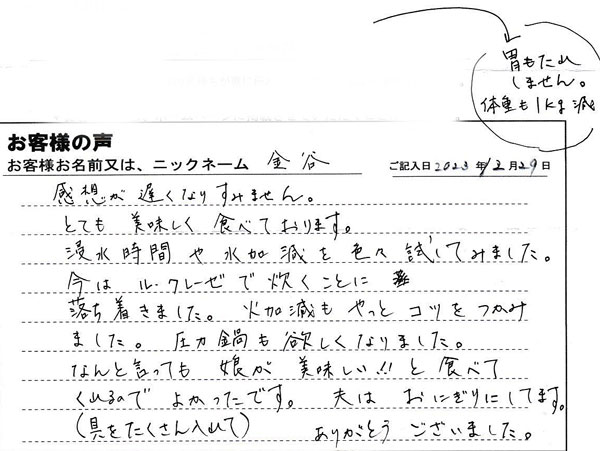 胃もたれ
しません。
体重も1kg減
お客様の声
お客様お名前又は、ニックネーム 金谷 ご記入日2023年12月29日
感想が遅くなりすみません。
とても美味しく食べております。
浸水時間や水加減を色々試してみました。
今はル・クレーゼで炊くことに
落ち着きました。火加減もやっとコツをつかみ
ました。圧力鍋も欲しくなりました。
なんと言っても娘が美味しい!!と食べて
くれるのでよかったです。夫はおにぎりにしてます。
(具をたくさん入れて) ありがとうございました。